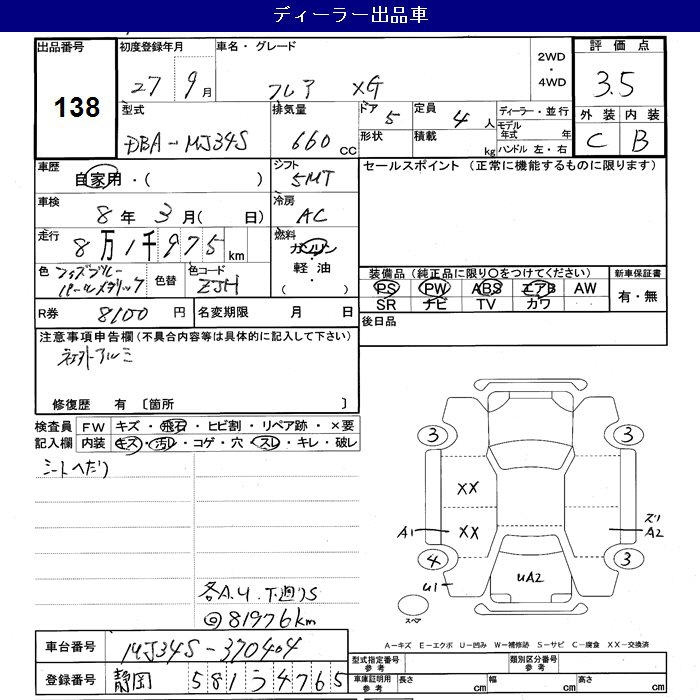 ディーラー出品車
出品番号 138
初度登録年月 27 9 月
車名・グレード フレア XG
2WD・4WD
評価点 3.5
外装 C 内装 B
型式 DBA-MJ34S
排気量 660 CC
ドア 5 形状
定員 4 人 積載 kg
ディーラー・並行
モデル年式 年
ハンドル 左・右
車歴 自家用・( )
シフト 5MT
セールスポイント (正常に機能するものに限ります)
車検 8 年 3 月( 日)
冷房 AC
走行 8万1千975 km
燃料 ガソリン・軽油・( )
色 パールメタリック
色替
色コード ZJH
装備品(純正品に限り○をつけてください)
PS PW ABS エアB AW
SR ナビ TV カワ
新車保証書 有・無
R券 8100 円
名変期限 月 日
後日品
注意事項申告欄(不具合内容等は具体的に記入して下さい)
社外アルミ
修復歴 有 〔箇所 〕
検査員記入欄
FW キズ・飛石・ヒビ割・リペア跡・×要
内装 キズ・汚レ・コゲ・穴・スレ・キレ・破レ
シートヘたり
各A.U.下廻りS
@81976km
3
3
XX
XX
A1
ズリ
A2
4
3
U1
UA2
スペア
A-キズ E-エクボ U-凹み W-補修跡 S-サビ C-腐食 XX-交換済
車台番号 MJ34S-370404
登録番号 静岡 581う4765
型式指定番号 参考
類別区分番号 参考
車庫証明用 参考 長さ cm 幅 cm 高さ cm